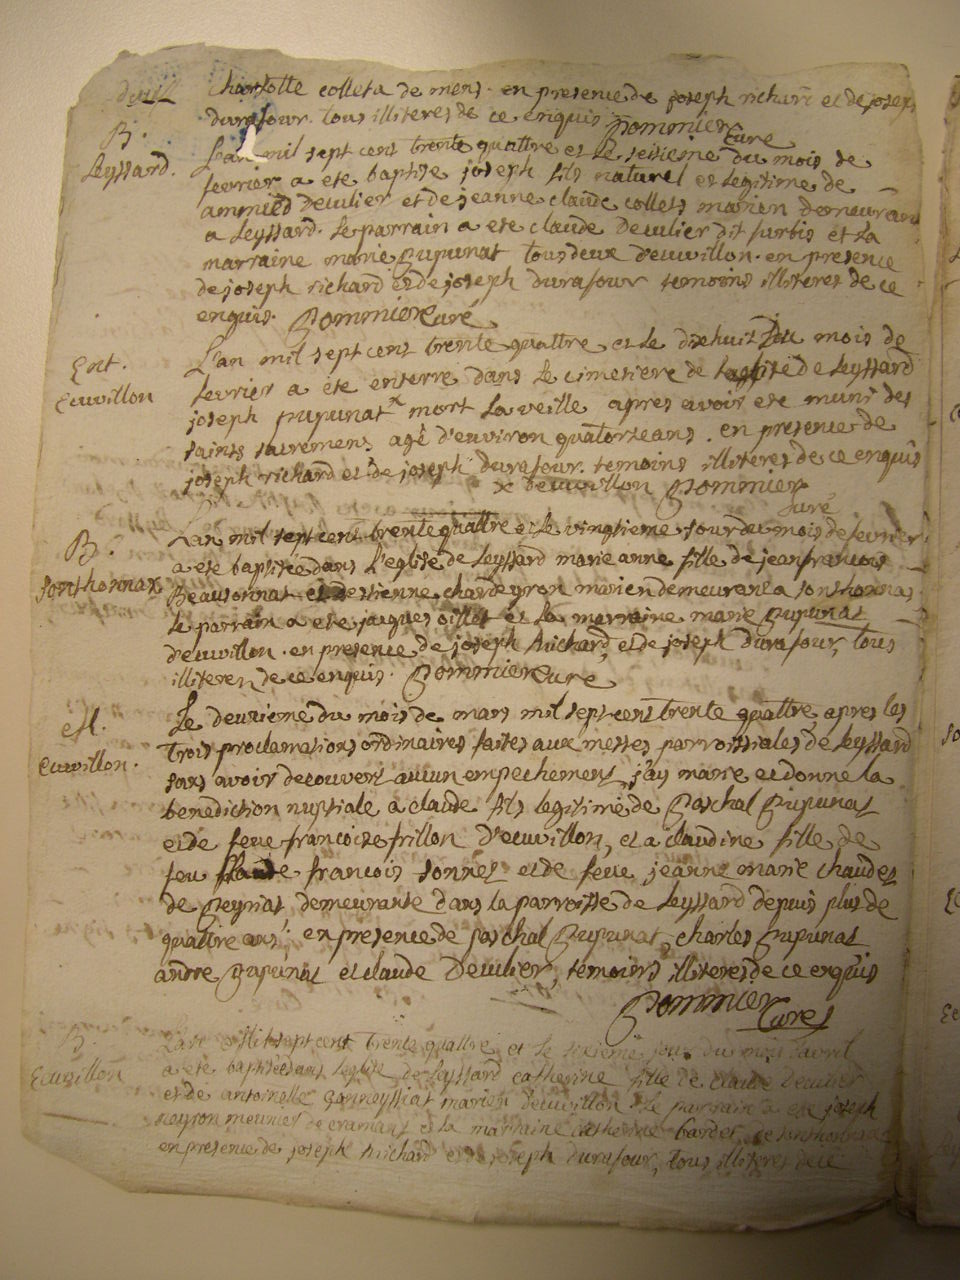 charlotte colleta de mens. en presence de joseph richard et de joseph
durafour. tous illiteres de ce enquis Pommier curé
B.
Leyssard.
L'an mil sept cens trente quattre et le seisieme du mois de
fevrier a eté baptisé joseph fils naturel et legitime de
ammied deculier et de jeanne claude collets mariers demeurans
a Leyssard. Le parrain a eté claude deculier dit surbis et la
marraine marie pupunat tous deux d'euvillon. en presence
de joseph richard et de joseph durafour temoins illiteres de ce
enquis. Pommier curé
Ent.
Ecuvillon
L'an mil sept cens trente quattre et le dixhuit du mois de
fevrier a eté enterré dans le cimetiere de l'eglise de Leyssard
joseph pupunat x mort la veille apres avoir eté muni des
saints sacremens. agé d'environ quatorze ans. en presence de
joseph richard et de joseph durafour. temoins illiteres de ce enquis
x deuvillon Pommier
curé
B.
Sonthonnax
L'an mil sept cens trente quattre et le vingtieme jour du mois de fevrier
a eté baptisée dans l'eglise de Leyssard marie anne fille de jean francois
Beausonnat et destienne chardeyron mariers demeurans a sonthonnax
le parrain a eté jacques oillet et la marraine marie pupunat
d'euvillon. en presence de joseph richard, et de joseph durafour, tous
illiteres de ce enquis. Pommier curé
M.
Ecuvillon.
Le deuxieme du mois de mars mil sept cens trente quattre, apres les
trois proclamations ordinaires faites aux messes parroissiales de Leyssard
sans avoir decouvert aucun empechement, j'ay marié et donné la
benediction nuptiale, a claude fils legitime de Paschal Pupunat
et de feue francoise frillon d'euvillon, et a claudine fille de
feu francois sonnet et de feue jeanne marie chaudet
de peyriat demeurante dans la parroisse de Leyssard depuis plus de
quattre ans; en presence de paschal Pupunat, charles Pupunat
andre pupunat et claude deculier, temoins illiteres de ce enquis
Pommier
curé
B.
Ecuvillon
L'an mil sept cent trente quattre et le sixieme jour du mois d'avril
a eté baptisée dans l'eglise de Leyssard catherine fille de claude deculier
et de antoinette gonneyssiat mariers deuvillon. le parrain a eté joseph
meunier de cramans et la marraine catherine bardet de sonthonnax
en presence de joseph richard et de joseph durafour, tous illiteres de ce